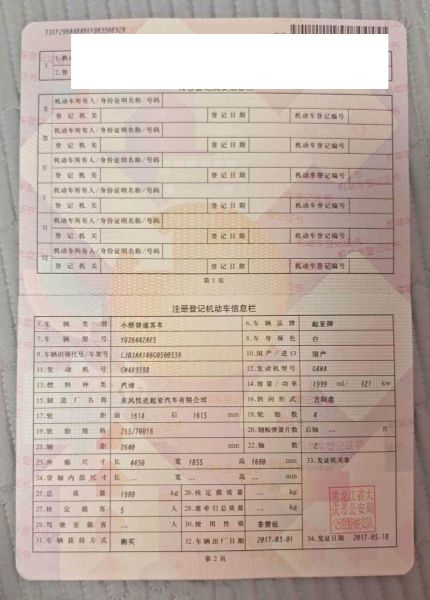 注册登记机动车信息栏
机动车所有人/身份证明名称/号码
Ⅱ 登记机关 登记日期 机动车登记编号
机动车所有人/身份证明名称/号码
Ⅲ 登记机关 登记日期 机动车登记编号
机动车所有人/身份证明名称/号码
Ⅳ 登记机关 登记日期 机动车登记编号
机动车所有人/身份证明名称/号码
Ⅴ 登记机关 登记日期 机动车登记编号
机动车所有人/身份证明名称/号码
Ⅵ 登记机关 登记日期 机动车登记编号
机动车所有人/身份证明名称/号码
Ⅶ 登记机关 登记日期 机动车登记编号
第1页
注册登记机动车信息栏
5.车辆类型 小型普通客车 6.车辆品牌 起亚牌
7.车辆型号 YQZ6442AE5 8.车身颜色 白
9.车辆识别代号/车架号 10.国产/进口 国产
11.发动机号 CW489398 12.发动机型号 G4NA
13.燃料种类 汽油 14.排量/功率 1999 ml/ 121 kw
15.制造厂名称 东风悦达起亚汽车有限公司 16.转向形式 方向盘
17.轮距 前 1614 后 1615 mm 18.轮胎数 4
19.轮胎规格 215/70R16 20.钢板弹簧片数 后轴 -- 片
21.轴距 2640 mm 22.轴数 2
23.外廓尺寸 长 4450 宽 1855 高 1660 mm 33.发证机关章
24.货厢内部尺寸 长 -- 宽 -- 高 -- mm
25.总质量 1980 kg 26.核定载质量 -- kg
27.核定载客 5 人 28.准牵引总质量 -- kg
29.驾驶室载客 -- 人 30.使用性质 非营运
31.车辆获得方式 购买 32.车辆出厂日期 2017-03-01 34.发证日期 2017-05-18
黑龙江省大庆市公安局
第2页